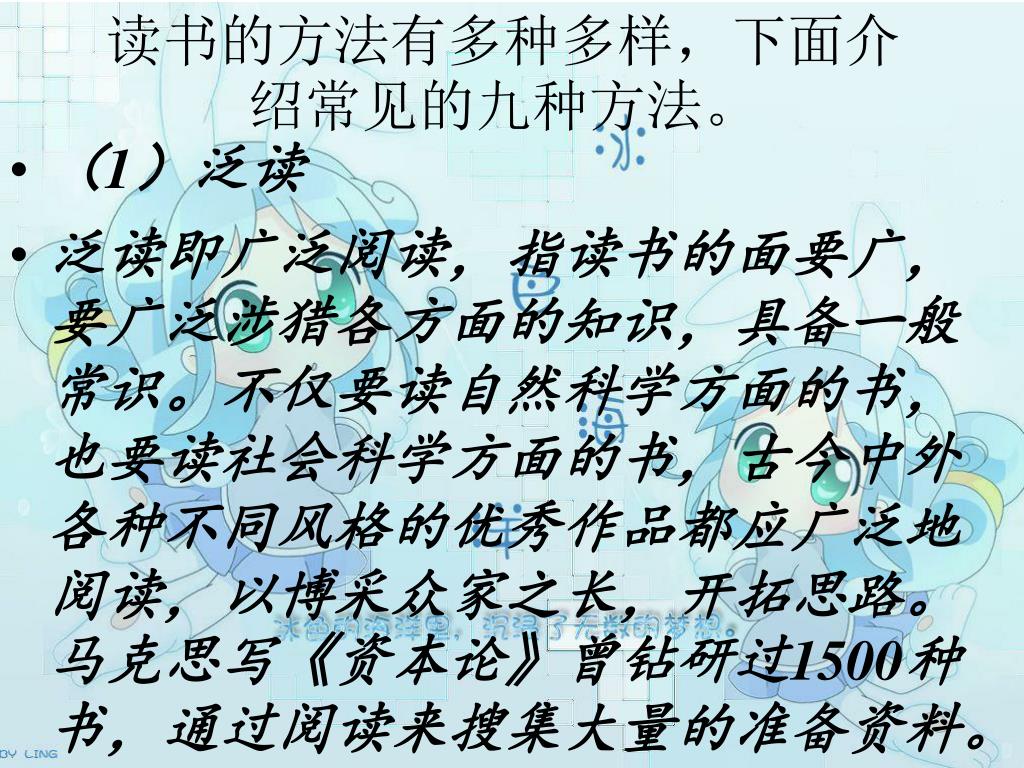 读书的方法有多种多样，下面介
绍常见的九种方法。
• （1）泛读
• 泛读即广泛阅读，指读书的面要广，
要广泛涉猎各方面的知识，具备一般
常识。不仅要读自然科学方面的书，
也要读社会科学方面的书，古今中外
各种不同风格的优秀作品都应广泛地
阅读，以博采众家之长，开拓思路。
马克思写《资本论》曾钻研过1500种
书，通过阅读来搜集大量的准备资料。
冰
色
海
洋
冰色的海洋里，沉浸了无数的梦想。
BY LING